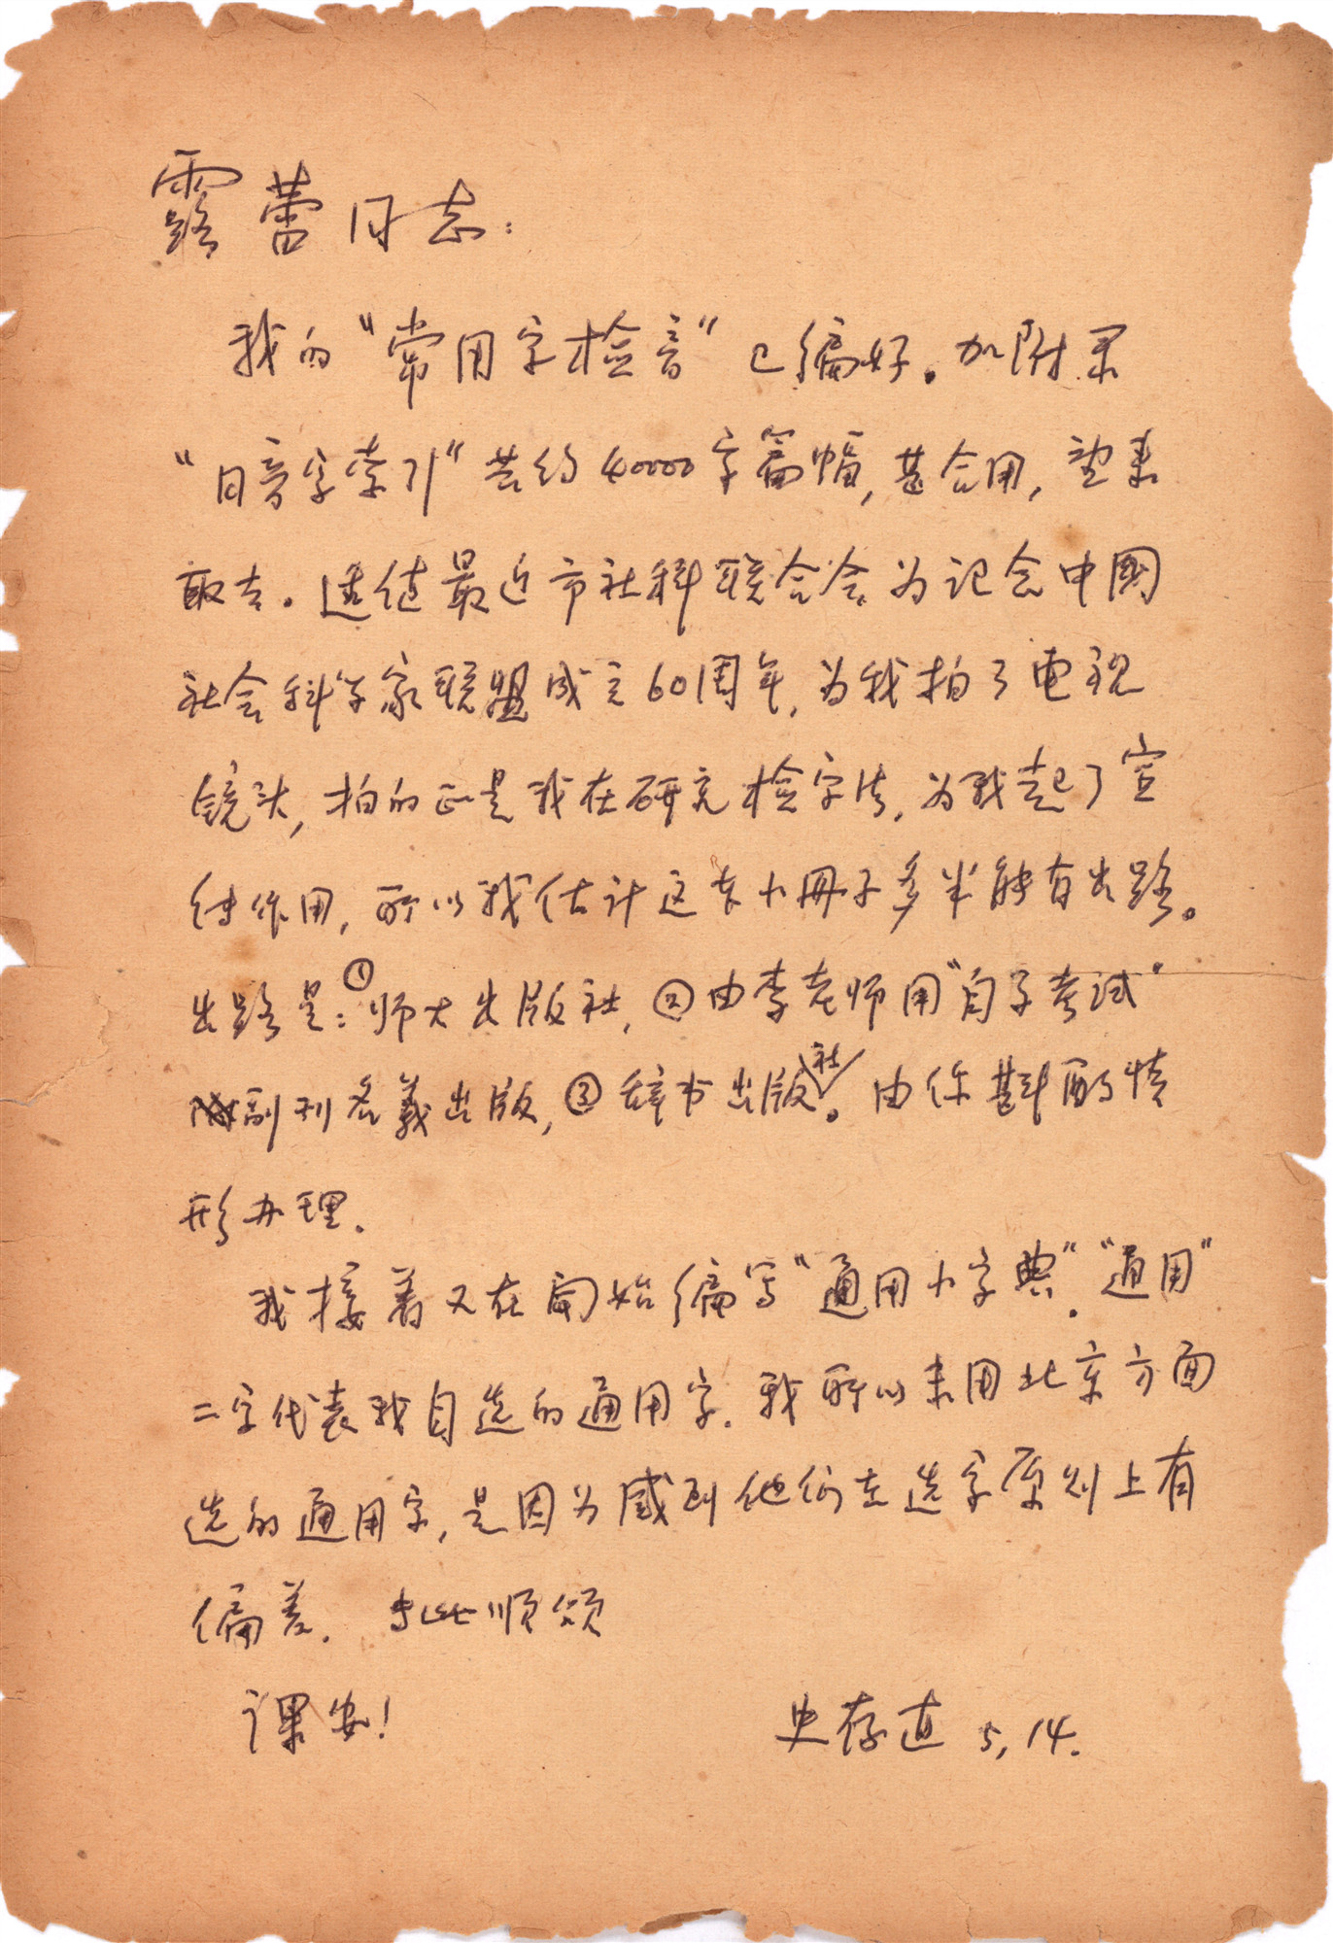 露蕾同志：
我的“常用字检音”已编好。加附录
“同音字索引”共约40000字篇幅，甚合用，望来
取去。适值最近市社科联合会为记念中國
社会科学家联盟成立60周年，为我拍了电视
镜头，拍的正是我在研究检字法，为我起了宣
传作用，所以我估计这本小册子多半能有出路。
出路是：①师大出版社，②由李老师用“自学考试”
副刊名義出版，③辞书出版社。由你斟酌情
形办理。
我接着又在开始编写“通用小字典”。“通用”
二字代表我自选的通用字。我所以未用北京方面
选的通用字，是因为感到他们在选字原则上有
偏差。专此顺颂
课安！
史存直 5,14.